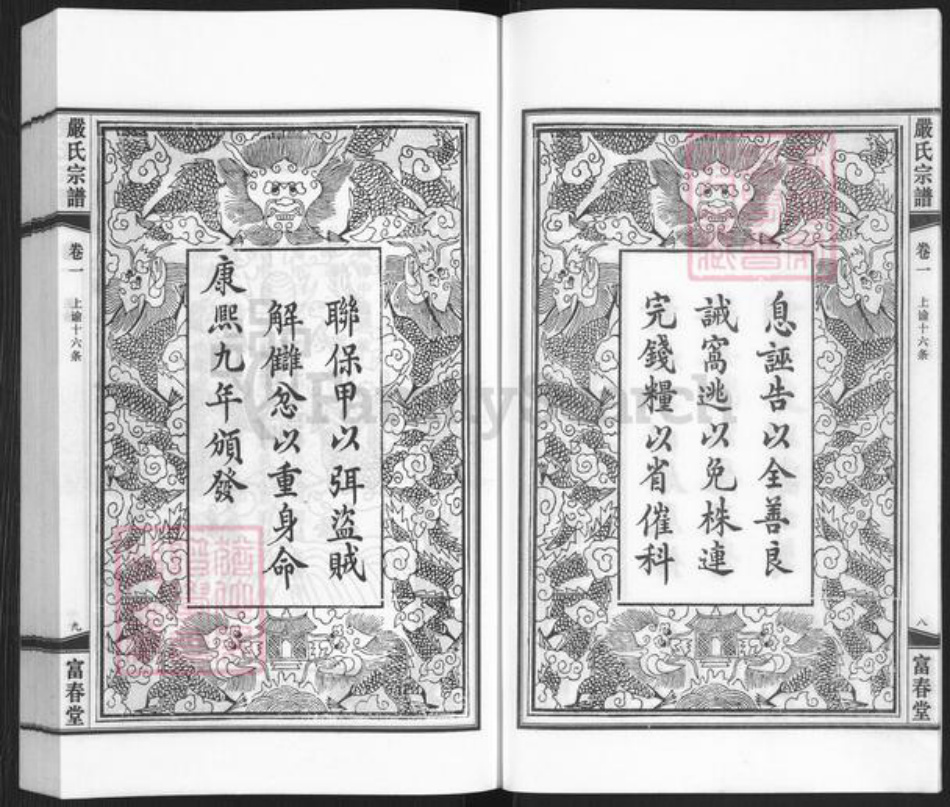 嚴氏宗譜
卷一
上諭十六条
八
富春堂
息誣告以全善良
誡窩逃以免株連
完錢糧以省催科
聯保甲以弭盜賊
解讎忿以重身命
康熙九年頒發
嚴氏宗譜
卷一
上諭十六条
九
富春堂
FamilySearch